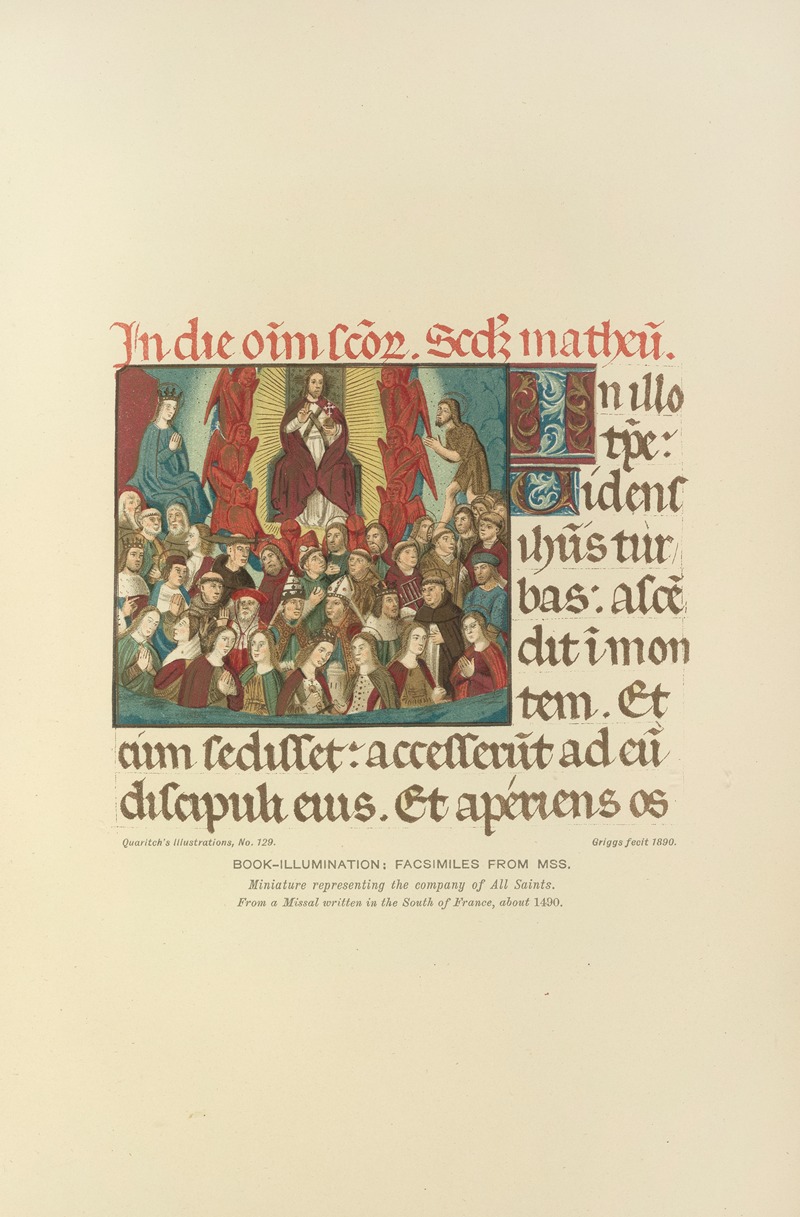 In die oīm ſcōꝝ. Scdꝫ matheū.
In illo
tp̄e:
Uidens
ihūs tur
bas: aſcē
dit ī mon
tem. Et
cum ſediſſet: acceſſerūt ad eū
diſcipuli eius. Et apériens os
Quaritch's Illustrations, No. 129.
Griggs fecit 1890.
BOOK-ILLUMINATION; FACSIMILES FROM MSS.
Miniature representing the company of All Saints.
From a Missal written in the South of France, about 1490.